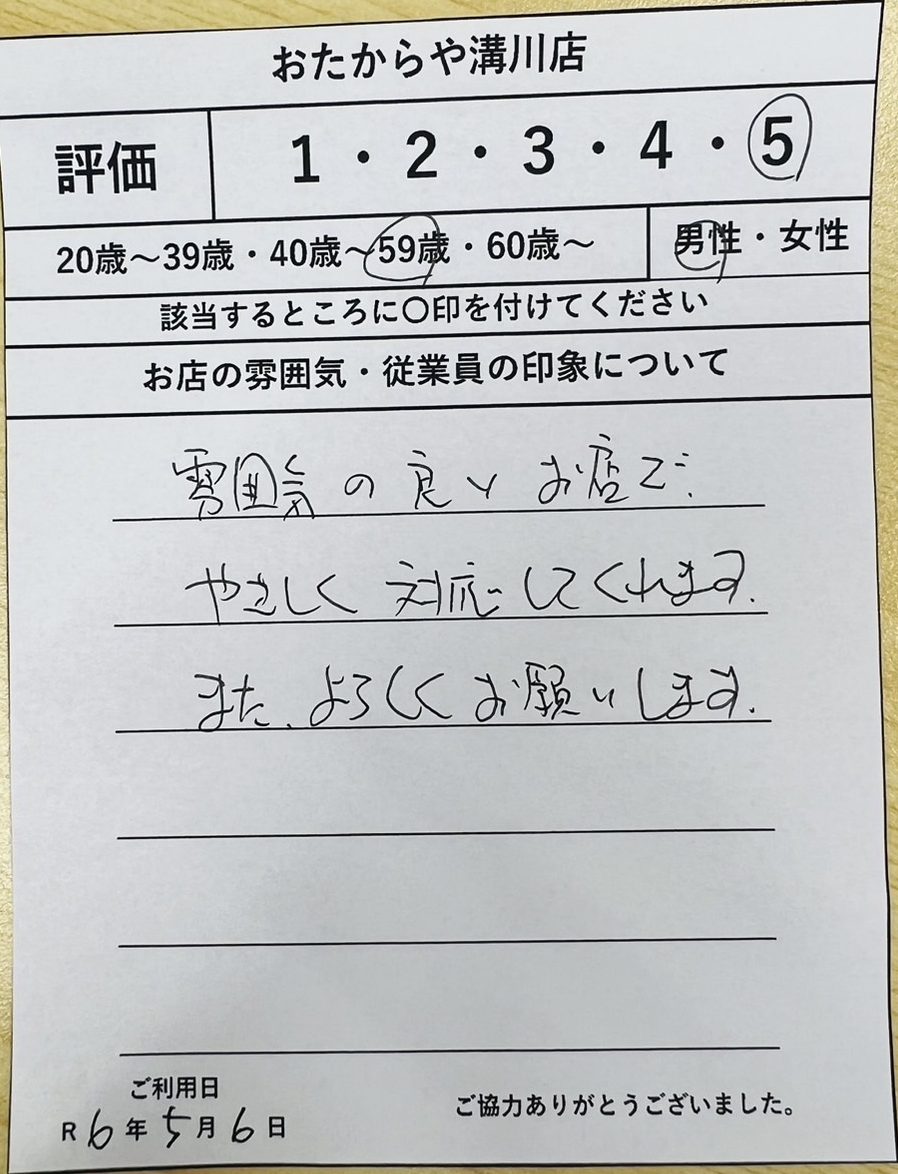 おたからや溝川店
評価 1・2・3・4・5
20歳～39歳・40歳～59歳・60歳～ 男性・女性
該当するところに〇印を付けてください
お店の雰囲気・従業員の印象について
雰囲気の良いお店で
やさしく対応してくれます。
また、よろしくお願いします。
ご利用日
R6年5月6日
ご協力ありがとうございました。